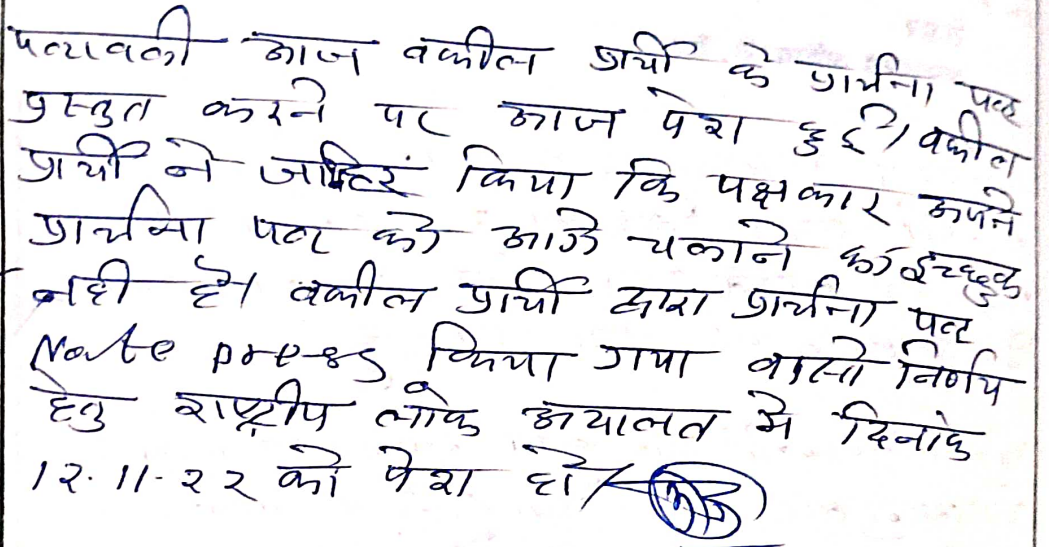 पत्रावली आज वकील प्रार्थी के प्रार्थना पत्र
प्रस्तुत करने पर आज पेश हुई। वकील
प्रार्थी ने जाहिर किया कि पक्षकार अपने
प्रार्थना पत्र को आगे चलाने का इच्छुक
नही है। वकील प्रार्थी द्वारा प्रार्थना पत्र
Note press किया गया वास्ते निर्णय
हेतु राष्ट्रीय लोक अदालत मे दिनांक
12.11.22 को पेश हो।